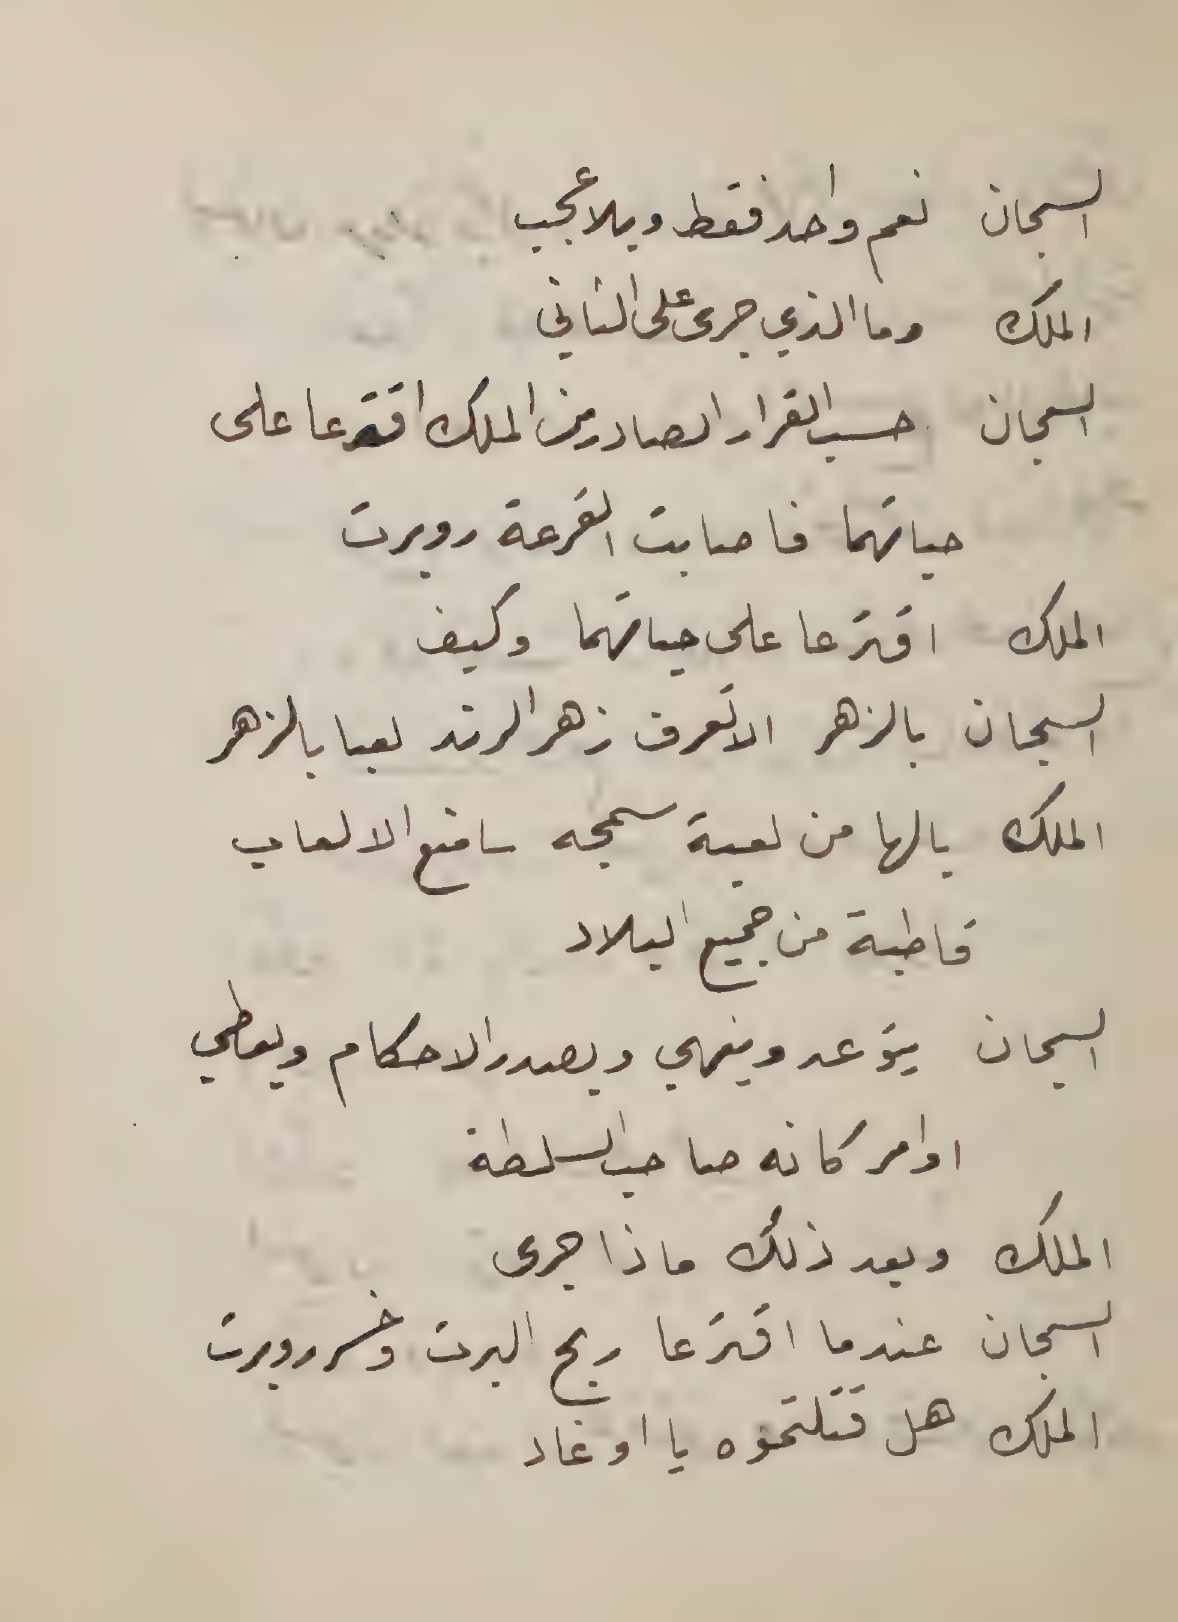 السجان نعم واحد فقط وبلا عجب
الملك وما الذي جرى على الثاني
السجان حسب القرار الصادر من الملك اقترعا على
حياتهما فاصابت القرعة روبرت
الملك اقترعا على حياتهما وكيف
السجان بالزهر الا تعرف زهر النرد لعبا بالزهر
الملك يالها من لعبة سمجه سامنع الالعاب
قاطبة من جميع البلاد
السجان يتوعد وينهي ويصدر الاحكام ويعطي
اوامر كانه صاحب السلطة
الملك وبعد ذلك ماذا جرى
السجان عندما اقترعا ربح البرت وخسر روبرت
الملك هل قتلتموه يا اوغاد